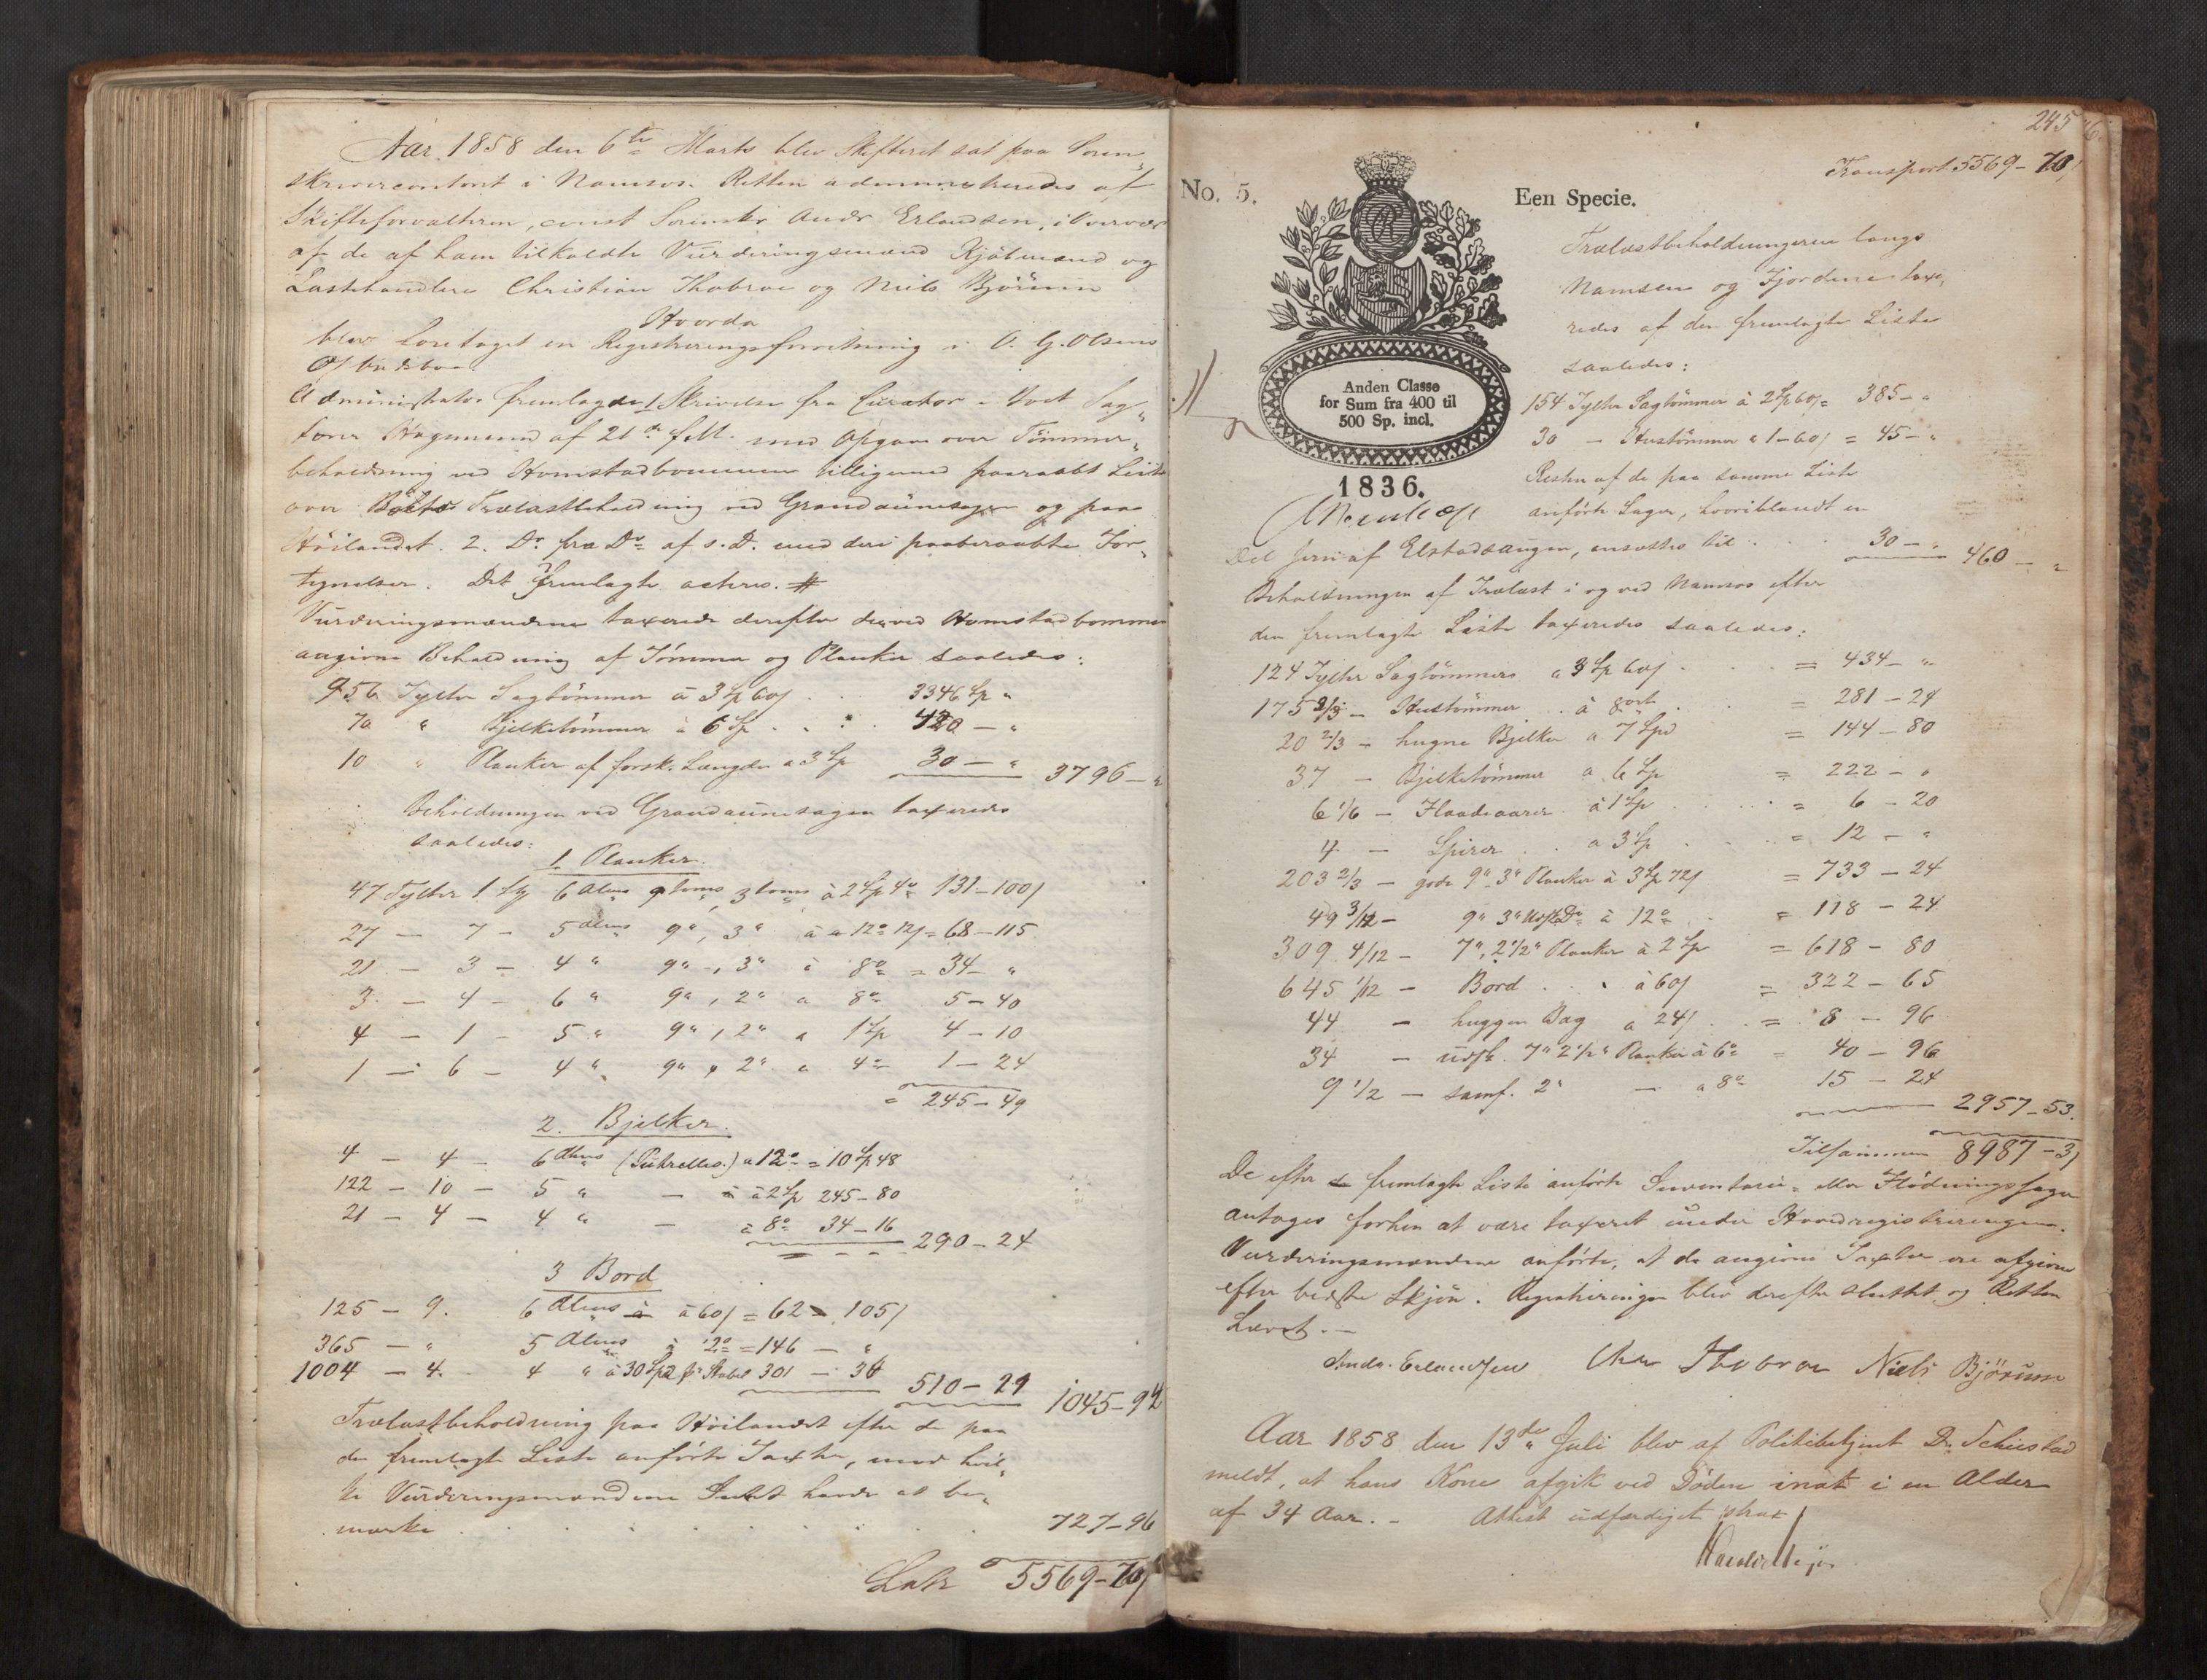 Aar 1858 den 6te Marts blev Skifteret sat paa Soren-
skrivercontoret i Namsos. Retten administreredes af
Skifteforvalteren, const Sorenskr Andr Erlandsen, i Overvær
af de af ham tilkaldte Vurderingsmænd Kjøbmænd og
Lasthandlere Christian Thobroe og Niels Bjørum
Hvorda
blev foretaget en Registreringsforretning i O. G. Olsens
Opbudsbo
Administrator fremlagde 1 Skrivelse fra Curator i Boet Sag-
fører Hagemann af 21de f. M. med Opgave over Tømmer-
beholdning ved Homstadbommen tilligemed paaraabt Liste
over Boets Trælastbeholdning ved Grandaunesagen og paa
Høilandet. 2. Do fra Do af s. D. med deri paaberaabte For-
tegnelser. Det fremlagte acteres. #
Vurderingsmændene taxerede derefter den ved Homstadbommen
angivne Beholdning af Tømmer og Planker saaledes:
956 Tylter Sagtømmer à 3 Sp 60 β . . 3346 Sp "
70 " Bjelketømmer à 6 Sp . . . 420 — "
10 " Planker af forsk. Længder a 3 Sp 30 — " 3796 — "
Beholdningen ved Grandaunesagen taxeredes
saaledes:
1 Planker.
47 Tylter 1 St 6 Alens 9 toms, 3 toms à 2 Sp 4 o 131 — 100 β
27 — 7 — 5 alens 9", 3" à 12 o 12 β = 68 — 115
21 — 3 — 4 " 9" , 3" à 8 o = 34 — "
3 — 4 — 6 " 9" , 2" a 8 o 5 — 40
4 — 1 — 5 " 9" , 2" a 1 Sp 4 — 10
1 — 6 — 4 " 9" , 2" a 4 o 1 — 24
= 245 — 49
2. Bjelker.
4 — 4 — 6 Alens (Puhrelles.) a 12 o = 10 Sp 48
122 — 10 — 5 " — à 2 Sp 245 — 80
21 — 4 — 4 " — à 8 o 34 — 16
290 — 24
3 Bord
125 — 9. 6 Alens à 60 β = 62 — 105 β
365 — " 5 Alens à 2 o = 146 — "
1004 — 4. 4 " à 30 Sp 301 — 36
510 — 29 1045 — 94
Trælastbeholdning paa Høilandet efter de paa
den fremlagte Liste anførte Taxter, mod hvil-
ke Vurderingsmændene Intet havde at be-
mærke . . . . . . . 727 — 96
Lats 5569 — 70 β
245
Transport 5569 — 70 β
No. 5.
Een Specie.
Anden Classe
for Sum fra 400 til
500 Sp. incl.
1836.
Trælastbeholdningerne langs
Namsen og Fjordene taxe-
redes af den fremlagte Liste
saaledes:
154 Tylter Sagtømmer à 2 Sp 60 β = 385 — "
30 — Hustømmer a 1 — 60 β = 45 — "
Resten af de paa samme Liste
anførte Sager, hvoriblandt en
Del Jern af Elstadsaugen, ansættes til . . . 30 — " 460 — "
Beholdningen af Trælast i og ved Namsos efter
den fremlagte Liste taxeredes saaledes:
124 Tylter Sagtømmers a 3 Sp 60 β . . = 434 — "
175 2/3 — Hustømmer . à 8 ort . = 281 — 24
20 2/3 — hugne Bjelker a 7 Spd = 144 — 80
37 — Bjelketømmer a 6 Sp = 222 — "
6 1/6 — Flaadeaarer à 1 Sp . . . = 6 — 20
4 — Spirer . . a 3 Sp . . = 12 — "
203 2/3 — gode 9" 3" Planker à 3 Sp 72 β = 733 — 24
49 3/12 — 9" 3" Udsk Do à 12 o . = 118 — 24
309 4/12 — 7", 2 1/2" Planker à 2 Sp = 618 — 80
645 1/12 — Bord . . . à 60 β = 322 — 65
44 — huggen Bag a 24 β . . = 8 — 96
34 — udsk. 7" 2 1/2" Planker à 6 o = 40 — 96
9 1/2 — samf. 2" — a 8 o 15 — 24
2957 — 53.
Tilsammen 8987 — 3 β
De efter fremlagte Liste anførte Inventarie- eller Flødningssager
antoges forhen at være taxeret under Hovedregistreringen.
Vurderingsmændene anførte, at de angivne Taxter ere afgivne
efter bedste Skjøn. Registreringen blev derefter sluttet og Retten
hævet. —
Andr. Erlandsen Chr Thobroe Niels Bjørum
Aar 1858 den 13de Juli blev af Politibetjent Dr. Schiestad
meldt, at hans Kone afgik ved Døden inat i en Alder
af 34 Aar. — Attest udfærdiget strax